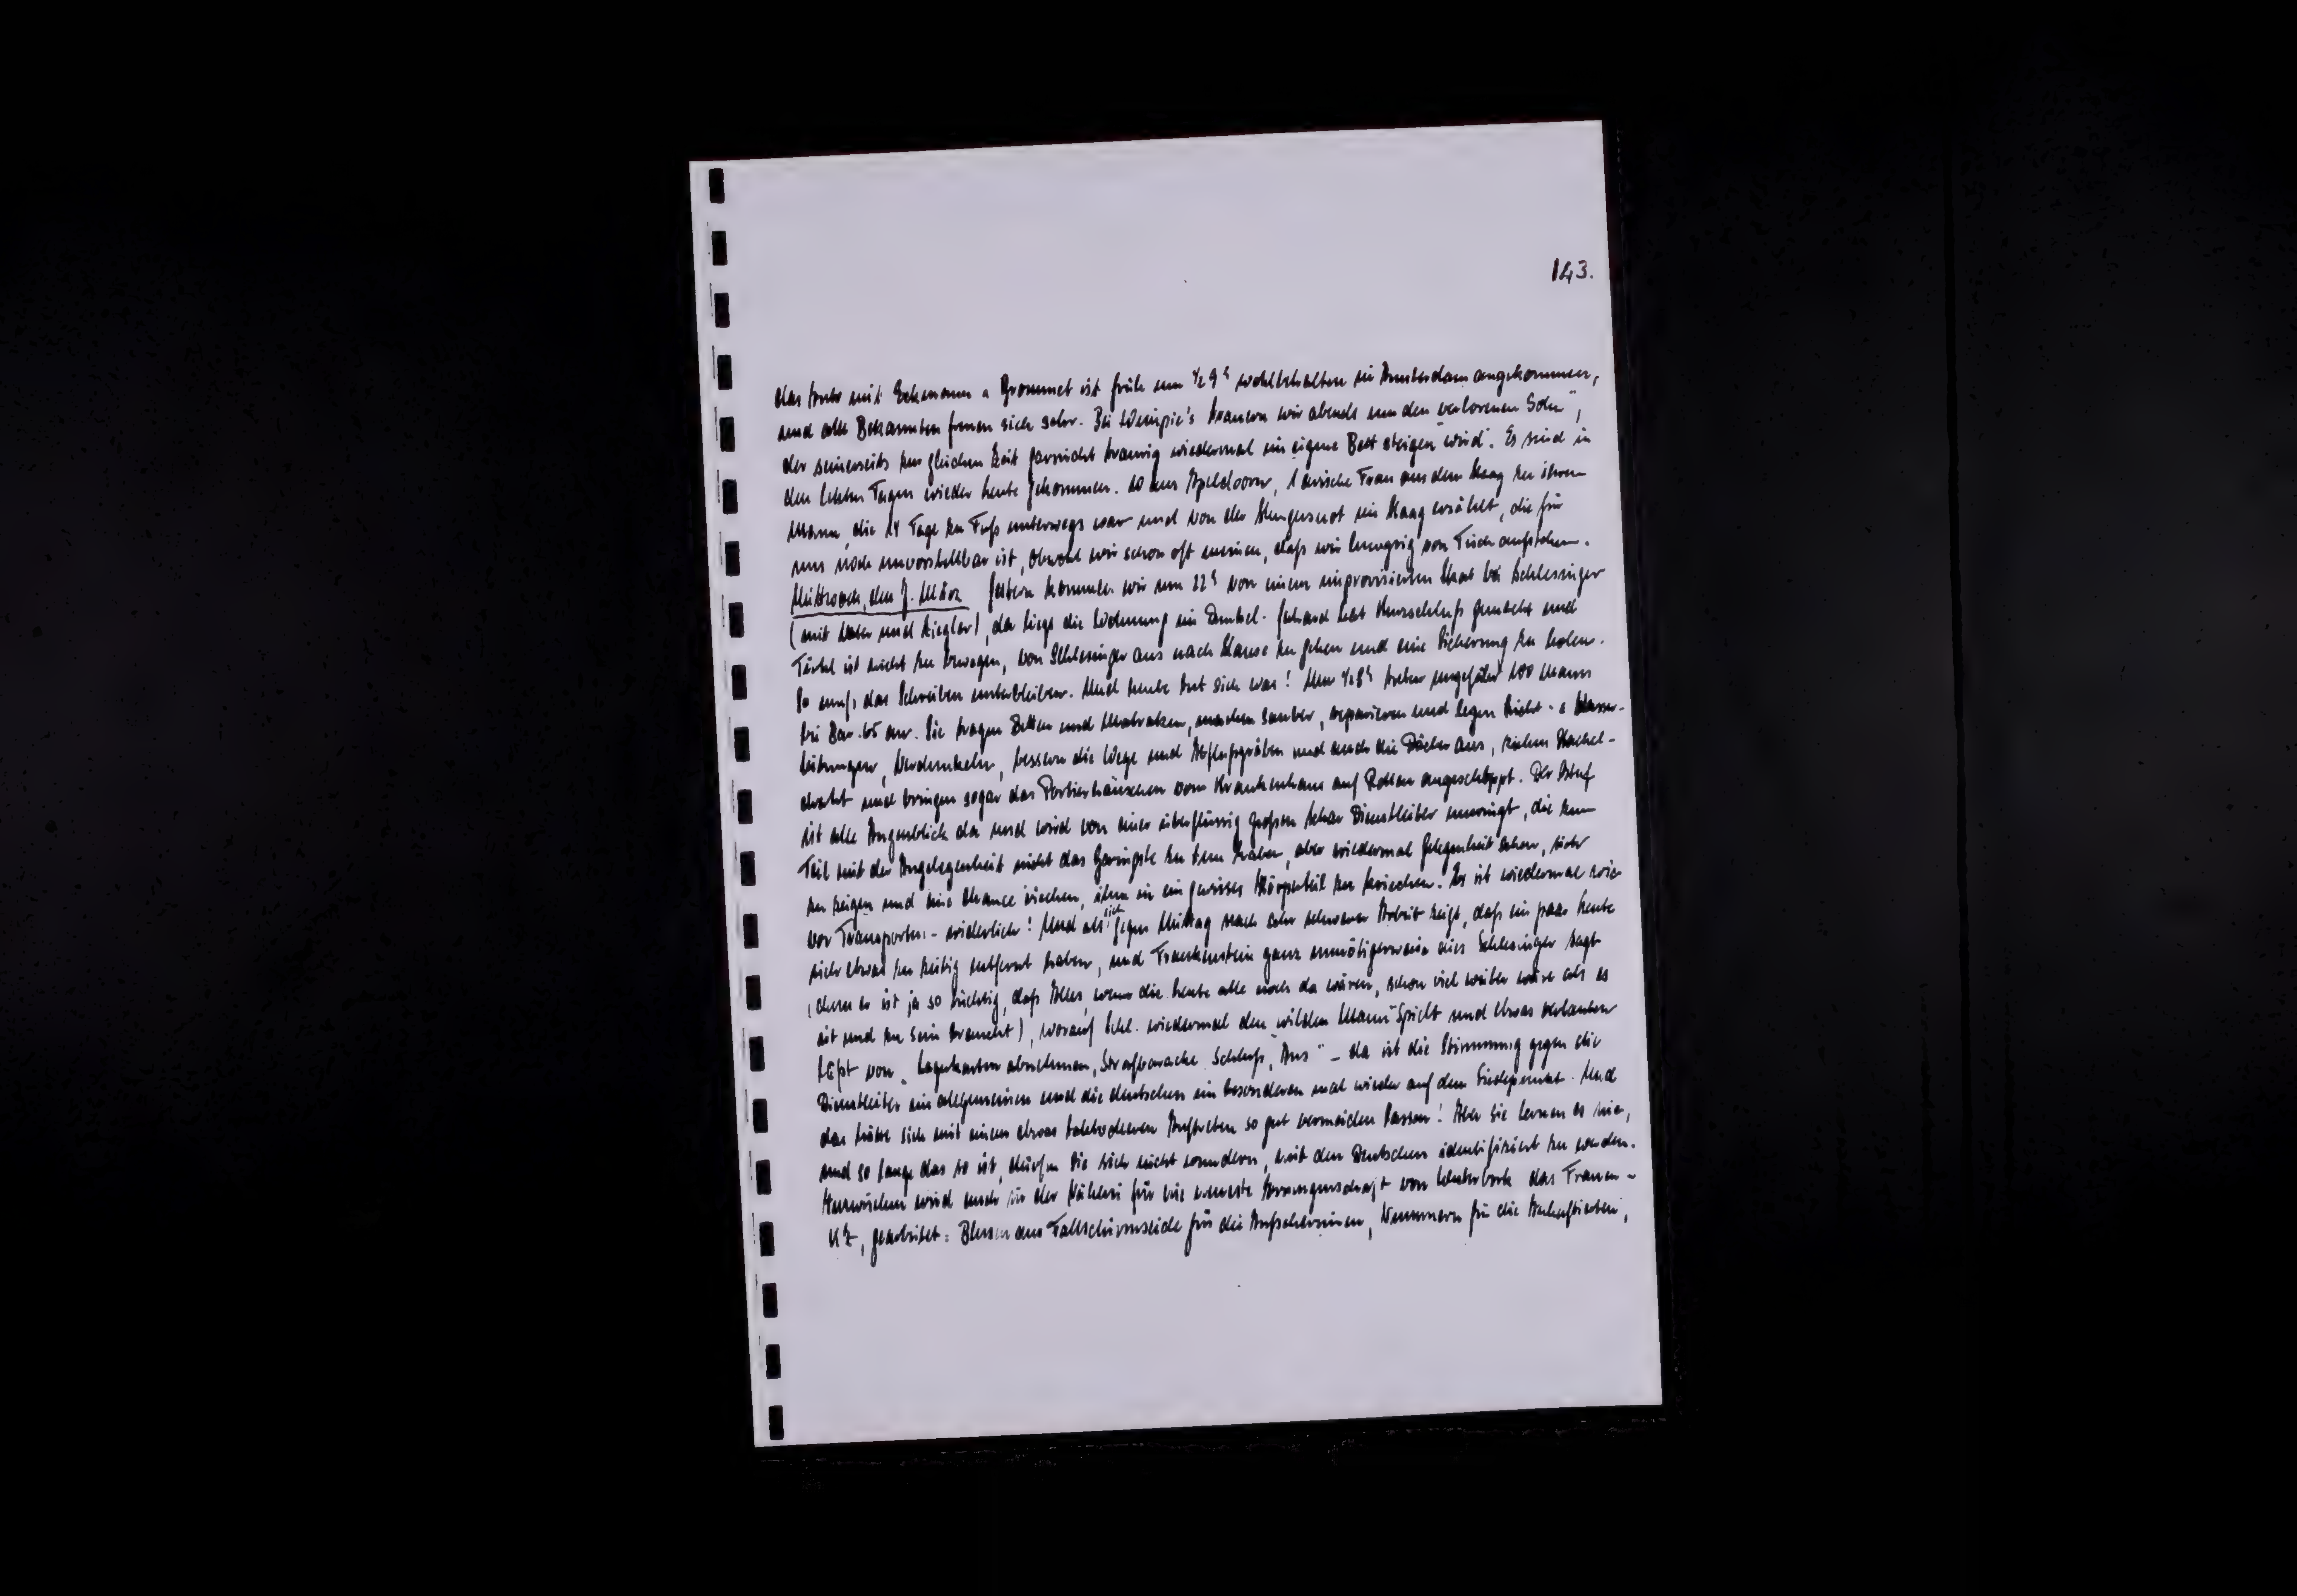 143.
das Auto mit Eckmann u Grommet ist früh um ½ 9ʰ wohlbehalten in Amsterdam angekommen,
und alle Bekannten freuen sich sehr. Bei Wempie's trauern wir abends um den „verlorenen Sohn",
der seinerseits zur gleichen Zeit garnicht traurig wiedermal ins eigene Bett steigen wird. Es sind in
den letzten Tagen wieder Leute gekommen. 10 aus Apeldoorn, 1 arische Frau aus dem Haag zu ihrem
Mann, die 14 Tage zu Fuß unterwegs war und von der Hungersnot im Haag erzählt, die für
uns noch unvorstellbar ist, obwohl wir schon oft meinen, daß wir hungrig vom Tisch aufstehen.
Mittwoch, den 7. März Gestern kommen wir um 22ʰ von einem improvisierten Skat bei Schlesinger
(mit und Ziegler), da liegt die Wohnung im Dunkel. Gerhard hat Kurzschluß gemacht und
Türkel ist nicht zu bewegen, von Schlesinger aus nach Hause zu gehen und eine Sicherung zu holen.
So muß das Schreiben unterbleiben. Und heute tut sich was! Um ½8ʰ treten ungefähr 100 Mann
bei Bar. 65 an. Sie tragen Betten und Matratzen, machen sauber, reparieren und legen Licht- u Wasser-
leitungen, verdunkeln, bessern die Wege und Abflußgräben und auch die Dächer aus, ziehen Stachel-
draht und bringen sogar das Portierhäuschen vom Krankenhaus auf Rollen angeschleppt. Der Ostuf
ist alle Augenblick da und wird von einer überflüssig großen Schar Dienstleiter umringt, die zum
Teil mit der Angelegenheit nicht das Geringste zu tun haben, aber wiedermal Gelegenheit sehen, sich
zu zeigen und eine Chance riechen, ihm in ein gewisses Körperteil zu kriechen. Es ist wiedermal wie
vor Transporten - widerlich! Und als sich gegen Mittag nach sehr schwerer Arbeit zeigt, daß ein paar Leute
sich etwas zu zeitig entfernt haben, und Frankenstein ganz unnötigerweise dies Schlesinger sagt
(denn es ist ja so tüchtig, daß Alles, wenn die Leute alle noch da wären, schon viel weiter wäre als es
ist und zu sein braucht), worauf Schl. wiedermal den „wilden Mann" spielt und etwas verlauten
läßt von „Lagerkarten abnehmen, Strafbaracke, Schluß, Aus" - da ist die Stimmung gegen die
Dienstleiter im allgemeinen und die deutschen im besonderen mal wieder auf dem Siedepunkt. Und
das hätte sich mit einem etwas taktvolleren Auftreten so gut vermeiden lassen! Aber sie lernen es nie,
und so lange das so ist, dürfen sie sich nicht wundern, mit den Deutschen identifiziert zu werden.
Inzwischen wird auch in der Näherei für die neueste Errungenschaft von Westerbork, das Frauen-
KZ, gearbeitet: Blusen aus Fallschirmseide für die Aufseherinnen, Nummern für die Inhaftierten,